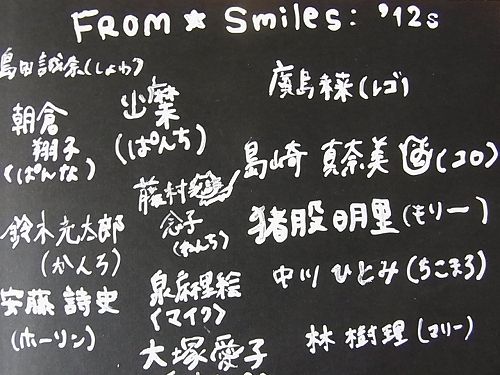 FROM ★ Smiles: '12s
島田誠奈(しょわ)
朝倉
翔子
(ぱんな)
出麿
(ぱんち)
廣島来菜(レゴ)
藤村
念子
(ねんち)
島崎 真奈美 (コロ)
猪股 明里(もりー)
鈴木光太郎
(かんろ)
泉麻里絵
(マイク)
中川 ひとみ(ちこまろ)
安藤 詩史
(ホーリン)
大塚愛子
林 樹理(マリー)